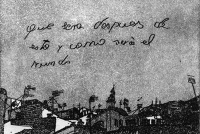 que sera despues de
esto y como será el
mundo